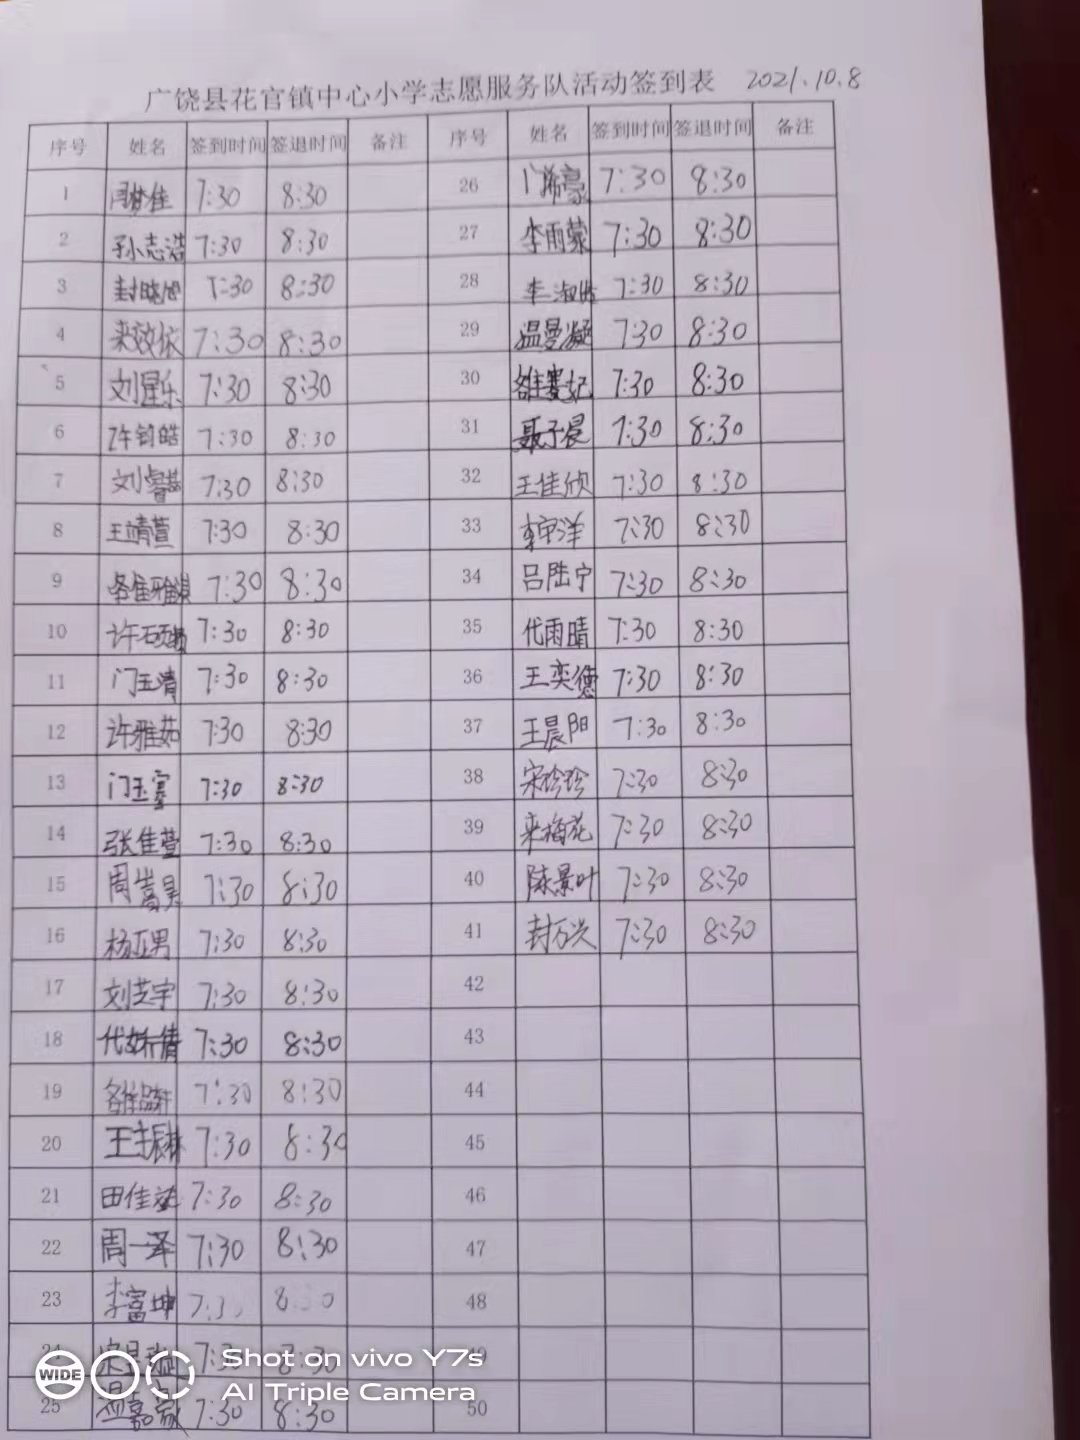 广饶县花官镇中心小学志愿服务队活动签到表 2021.10.8
序号 姓名 签到时间 签退时间 备注 序号 姓名 签到时间 签退时间 备注
1 周梦佳 7:30 8:30 26 门浠豪 7:30 8:30
2 孙志浩 7:30 8:30 27 李雨蒙 7:30 8:30
3 封晓旭 7:30 8:30 28 李淑 7:30 8:30
4 来效依 7:30 8:30 29 温曼凝 7:30 8:30
5 刘星乐 7:30 8:30 30 雒赛妃 7:30 8:30
6 许钧皓 7:30 8:30 31 聂子晨 7:30 8:30
7 刘睿 7:30 8:30 32 王佳欣 7:30 8:30
8 王靖萱 7:30 8:30 33 李宗洋 7:30 8:30
9 雒雅淇 7:30 8:30 34 吕陆宁 7:30 8:30
10 许硕 7:30 8:30 35 代雨晴 7:30 8:30
11 门玉清 7:30 8:30 36 王奕德 7:30 8:30
12 许雅茹 7:30 8:30 37 王晨阳 7:30 8:30
13 门玉 7:30 8:30 38 宋珍珍 7:30 8:30
14 张佳萱 7:30 8:30 39 来梅花 7:30 8:30
15 周嵩昊 7:30 8:30 40 陈景叶 7:30 8:30
16 杨亚男 7:30 8:30 41 封万兴 7:30 8:30
17 刘芝宇 7:30 8:30 42
18 代娇倩 7:30 8:30 43
19 雒 7:30 8:30 44
20 王振林 7:30 8:30 45
21 田佳斌 7:30 8:30 46
22 周一泽 7:30 8:30 47
23 李富坤 7:3 8:30 48
24 宋昱 7:30 8:30 49
25 温嘉豪 7:30 8:30 50
WIDE Shot on vivo Y7s
AI Triple Camera